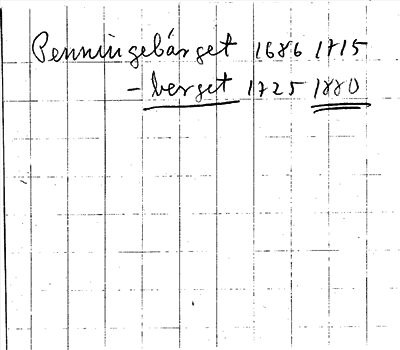 Penningebärget 1686 1715
- berget 1725 1880